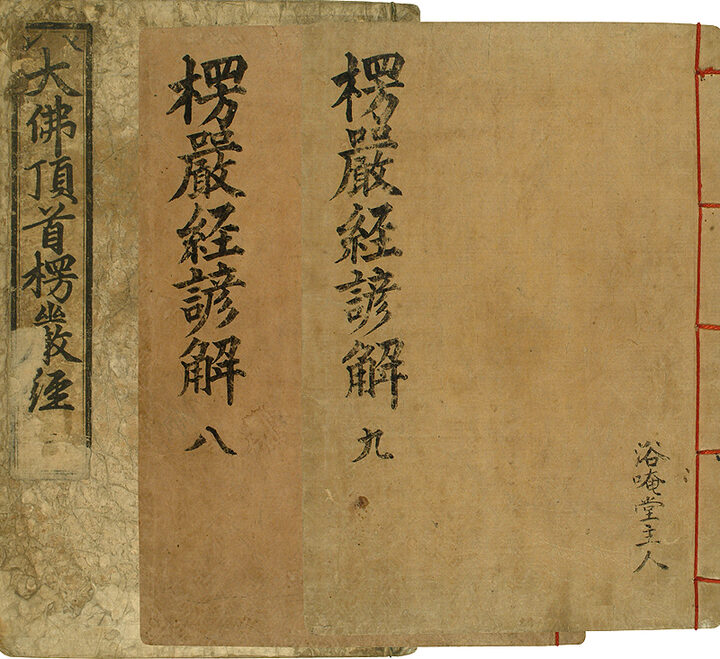 大佛頂首楞嚴經
楞嚴経諺解
八
楞嚴経諺解
九
浴唵堂主人